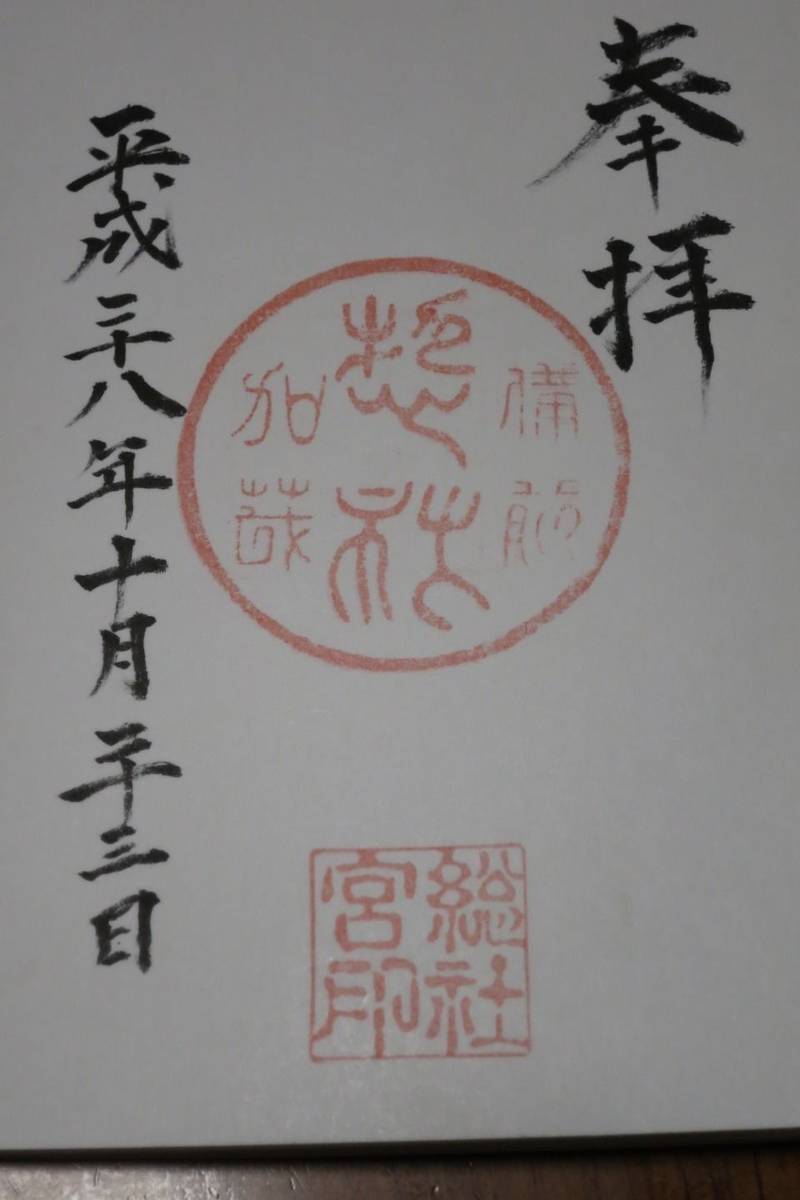 奉拝
備前
惣社
加茂
総社
宮印
平成二十八年十月二十三日